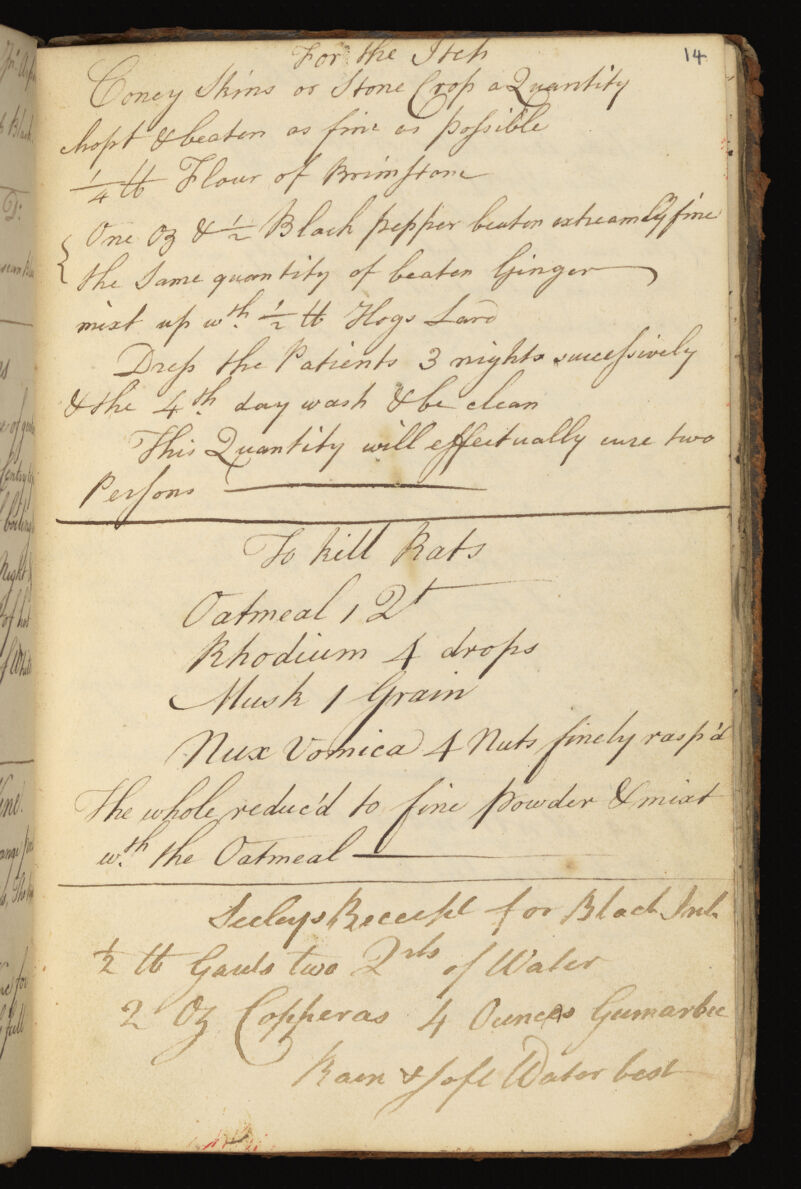 14
For the Itch
Coney Skins or Stone Crop a Quantity
chopt & beaten as fine as possible
1/4 ℔ Flour of Brimstone
One Oz & 1/2 Black pepper beaten extreamly fine
the Same quantity of beaten Ginger
mixt up wth. 1/2 ℔ Hogs Lard
Dress the Patients 3 nights successively
& the 4th. day wash & be clean
This Quantity will effectually cure two
Persons
To kill Rats
Oatmeal 1 Qt
Rhodium 4 drops
Musk 1 Grain
Nux Vomica 4 Nuts finely rasp'd
The whole reduc'd to fine powder & mixt
wth. the Oatmeal
Seeleys Receept for Black Ink
1/2 ℔ Gauls two Qrts of Water
2 Oz Copperas 4 Ounces Gumarbec
Raen & soft Water best